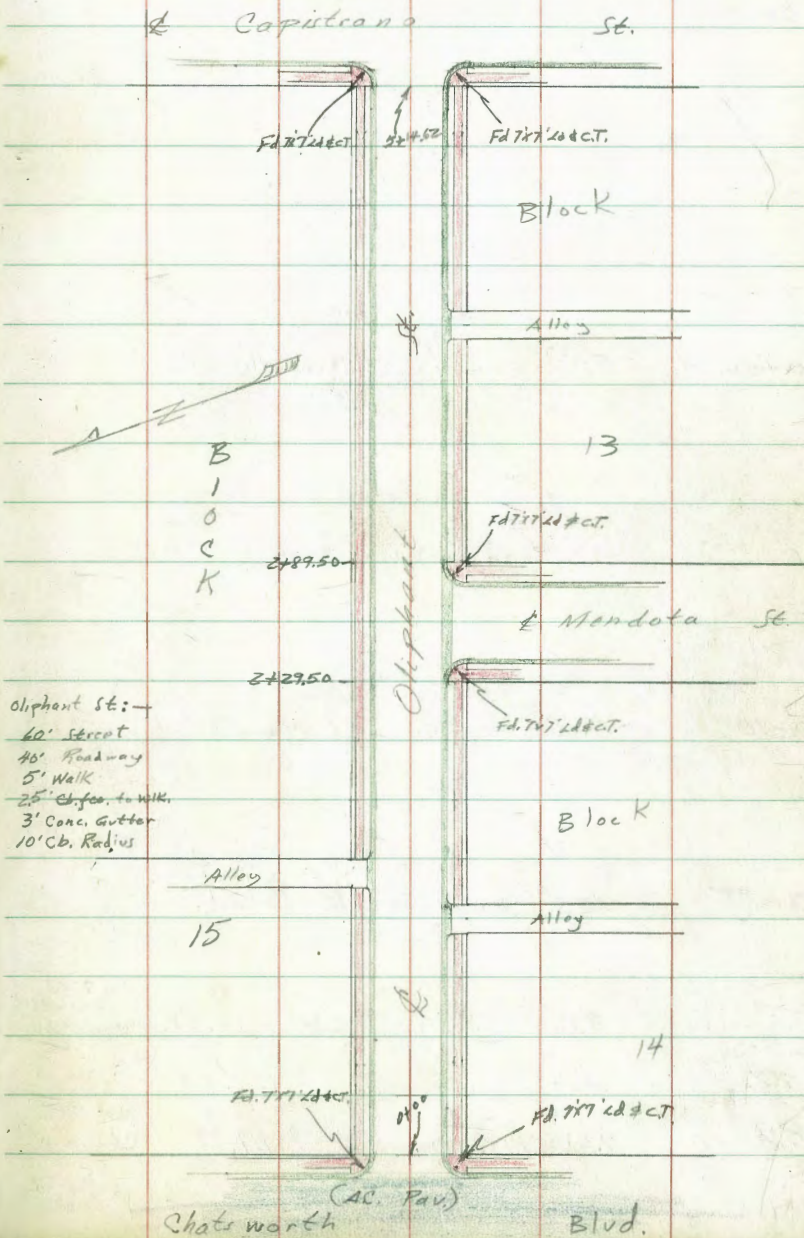 ℄ Capistrano St.
Fd 7'x7' Ld & C.T.
5+14.52
Fd 7'x7' Ld & C.T.
Block
Alley
St.
13
B
l
o
c
K
Fd 7'x7' Ld & C.T.
2+89.50
Oliphant
℄ Mendota St.
2+29.50
Oliphant St:-
60' Street
40' Roadway
5' Walk
2.5' Cb. fce. to Wlk.
3' Conc. Gutter
10' Cb. Radius
Fd. 7'x7' Ld & C.T.
Block
Alley
15
Alley
℄
14
Fd. 7'x7' Ld & C.T.
0+00
Fd. 7'x7' Ld & C.T.
(AC. Pav.)
Chatsworth Blvd.